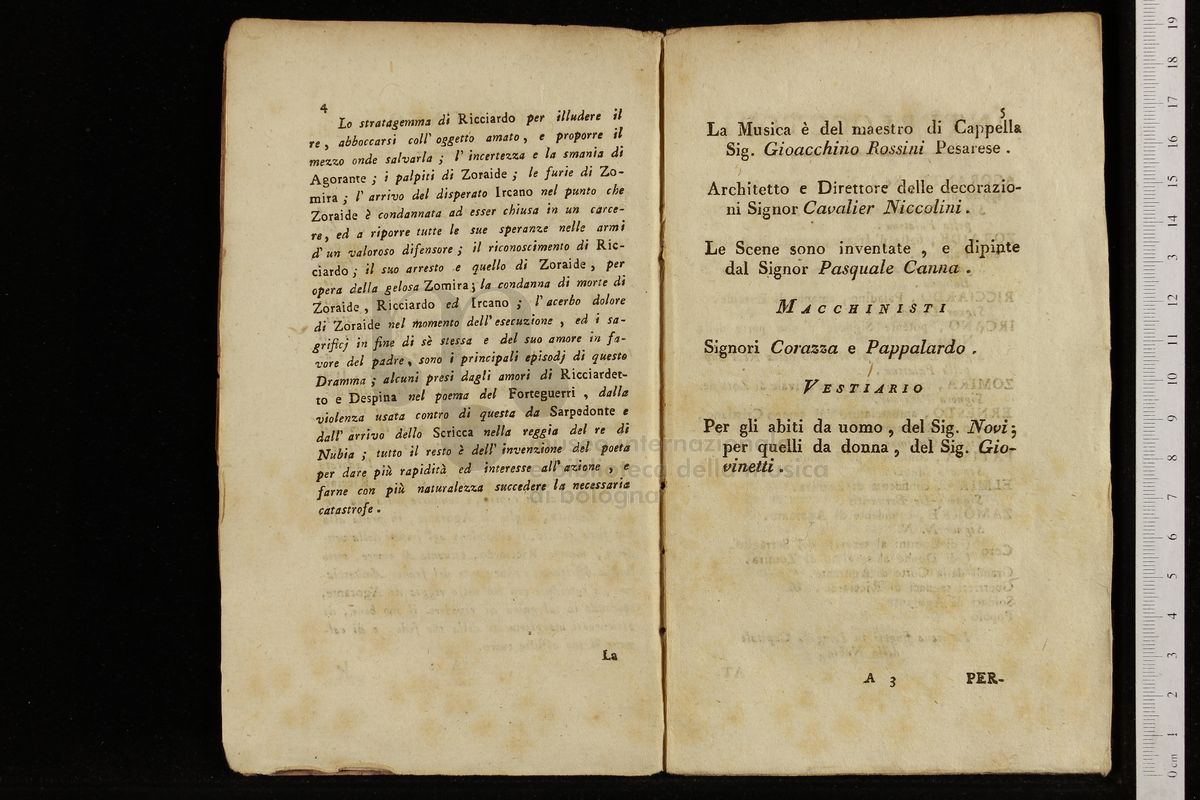 4
Lo stratagemma di Ricciardo per illudere il
re, abboccarsi coll' oggetto amato, e proporre il
mezzo onde salvarla ; l' incertezza e la smania di
Agorante ; i palpiti di Zoraide ; le furie di Zo-
mira ; l' arrivo del disperato Ircano nel punto che
Zoraide è condannata ad esser chiusa in un carce-
re, ed a riporre tutte le sue speranze nelle armi
d' un valoroso difensore ; il riconoscimento di Ric-
ciardo ; il suo arresto e quello di Zoraide, per
opera della gelosa Zomira ; la condanna di morte di
Zoraide, Ricciardo ed Ircano ; l' acerbo dolore
di Zoraide nel momento dell' esecuzione, ed i sa-
grificj in fine di sè stessa e del suo amore in fa-
vore del padre, sono i principali episodj di questo
Dramma ; alcuni presi dagli amori di Ricciardet-
to e Despina nel poema del Forteguerri, dalla
violenza usata contro di questa da Sarpedonte e
dall' arrivo dello Scricca nella reggia del re di
Nubia ; tutto il resto è dell' invenzione del poeta
per dare più rapidità ed interesse all' azione, e
farne con più naturalezza succedere la necessaria
catastrofe.
La
5
La Musica è del maestro di Cappella
Sig. Gioacchino Rossini Pesarese.
Architetto e Direttore delle decorazio-
ni Signor Cavalier Niccolini.
Le Scene sono inventate, e dipinte
dal Signor Pasquale Canna.
MACCHINISTI
Signori Corazza e Pappalardo.
VESTIARIO
Per gli abiti da uomo, del Sig. Novi ;
per quelli da donna, del Sig. Gio-
vinetti.
A 3 PER-
museo internazionale
e biblioteca della musica
di bologna
0 cm 1 2 3 4 5 6 7 8 9 10 11 12 13 14 15 16 17 18 19